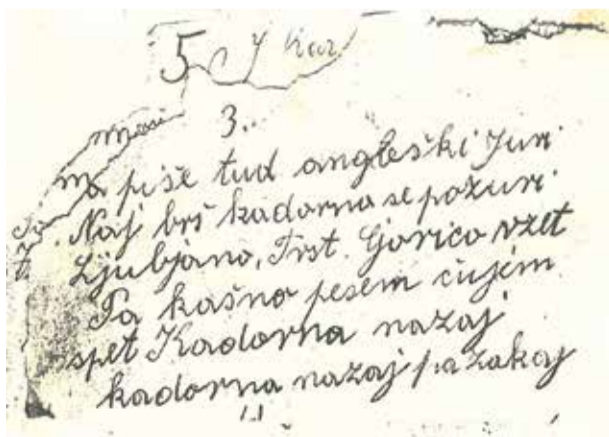 5
3.
a piše tud angleški Juri
Naj brš kadorna se požuri
Ljubjano, Trst. Gorico vzet
Pa kašno pesem čujem
spet Kadorna nazaj
kadorna nazaj pa zakaj